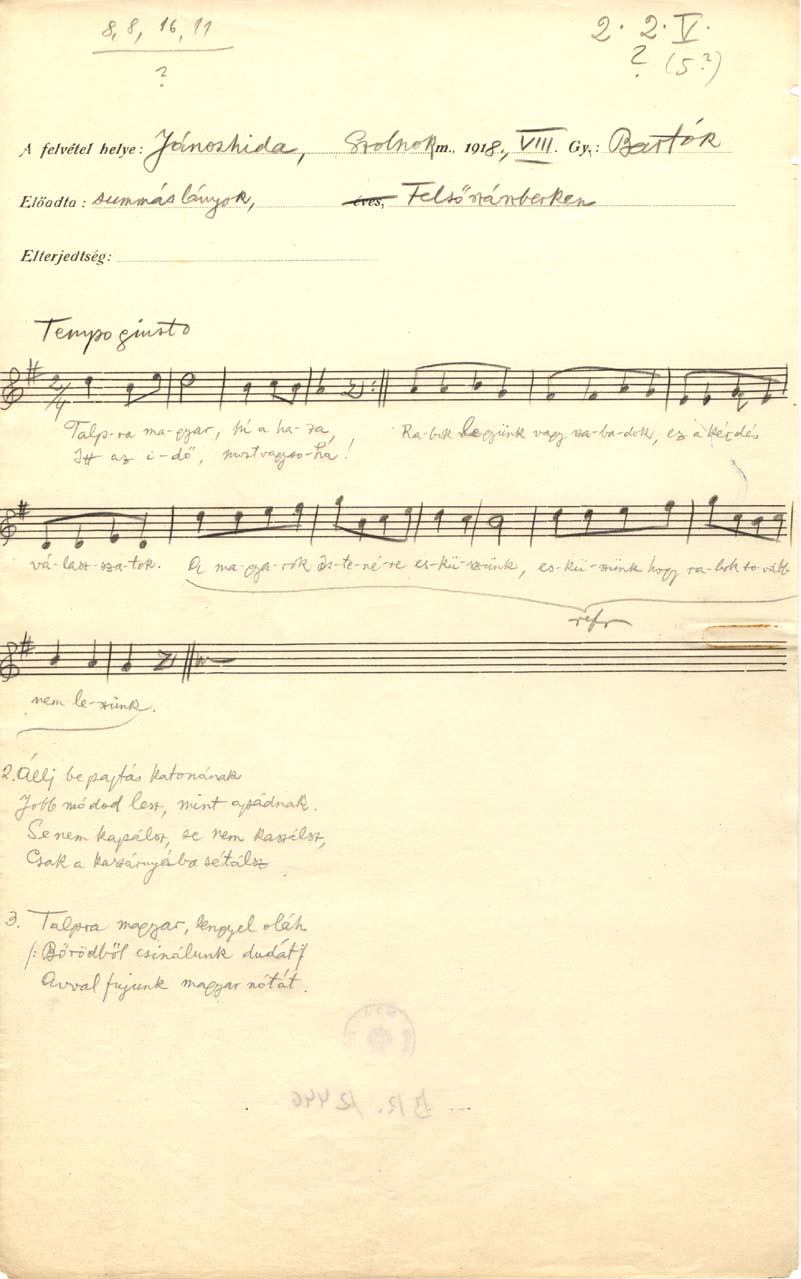 8, 8, 16, 11
?
2. 2. V.
? (5?)
A felvétel helye: Jánoshida, Szolnok m., 1918., VIII. Gy.: Bartók
Előadta: summás lányok, éves, Felsőszászberken
Elterjedtség:
Tempo giusto
2/4
Talp-ra ma-gyar, hí a ha-za, Ra-bok legyünk vagy sza-ba-dok, ez a kérdés
Itt az i-dő, most vagy so-ha!
vá-lasz-sza-tok. A ma-gya-rok Is-te-né-re es-kü-szünk, es-kü-szünk hogy ra-bok to-vább
refr
nem le-szünk.
2. Állj be pajtás katonának
Jobb módod lesz, mint apádnak.
Se nem kapálsz, se nem kaszálsz,
Csak a kaszárnyába sétálsz
3. Talpra magyar, lengyel oláh
/: Bőrödből csinálunk dudát :/
Avval fujunk magyar nótát.
B R. 12446